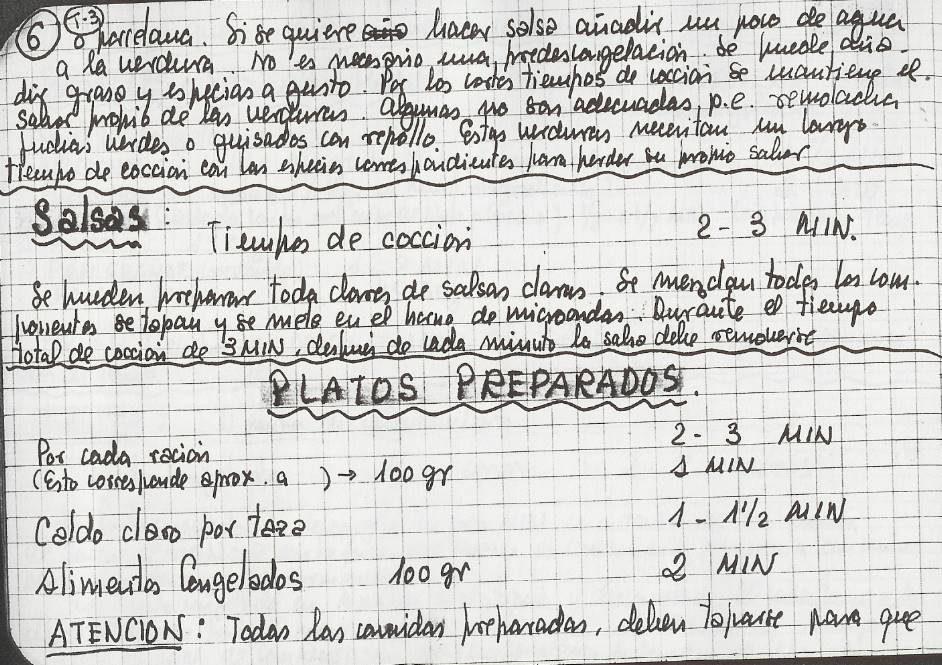 6 T-3 porcelana. Si se quiere hacer salsa añadir un poco de agua
a la verdura No es necesario una predescongelación. Se puede aña-
dir grasa y especias a gusto. Por los cortos tiempos de cocción se mantiene el.
sabor propio de las verduras. Algunas no son adecuadas, p.e. remolacha
judias verdes o guisados con repollo. Estas verduras necesitan un largo
tiempo de cocción con las especies correspondientes para perder su propio sabor
Salsas: Tiempos de cocción 2 - 3 MIN.
Se pueden preparar toda clases de salsas claras. Se mezclan todos los com.
ponentes se tapan y se mete en el horno de microondas. Durante el tiempo
total de cocción de 3 MIN, después de cada minuto la salsa debe removerse
PLATOS PREPARADOS.
Por cada ración 2 - 3 MIN
(Esto corresponde aprox. a ) → 100 gr 1 MIN
Caldo claro por taza 1 - 1 1/2 MIN
Alimentos Congelados 100 gr 2 MIN
ATENCION: Todas las comidas preparadas, deben taparse para que